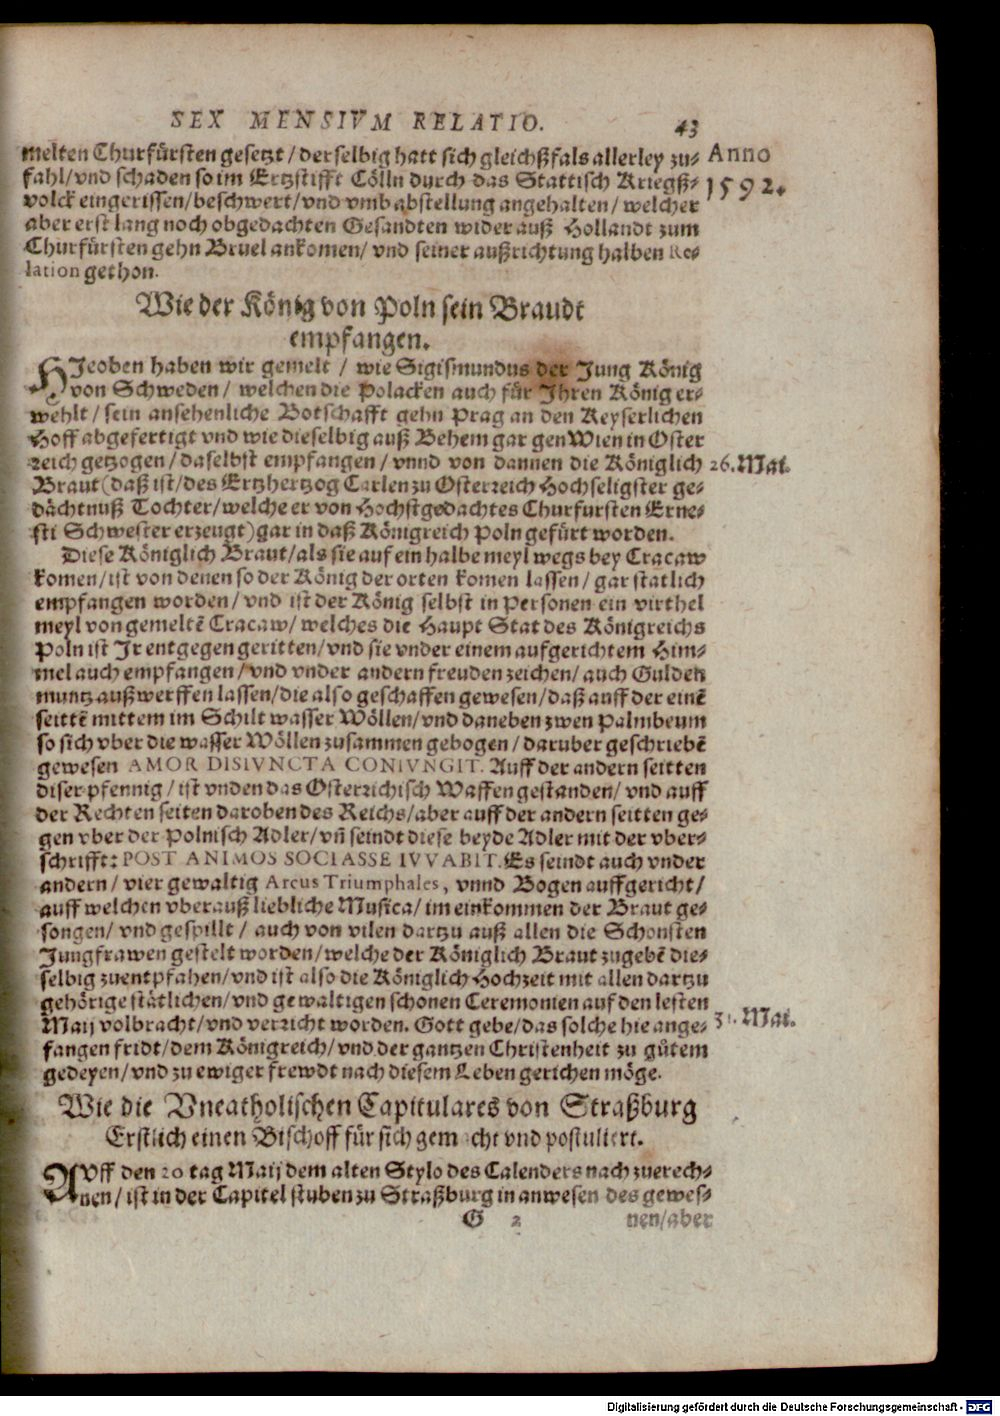 SEX MENSIVM RELATIO. 43
melten Churfürsten gesetzt / derselbig hatt sich gleichßfals allerley zu⸗
fahl / vnd schaden so im Ertzstifft Cölln durch das Stattisch Kriegß⸗
volck eingerissen / beschwert / vnd vmb abstellung angehalten / welcher
aber erst lang noch obgedachten Gesandten wider auß Hollandt zum
Churfürsten gehn Bruel ankomen / vnd seiner außrichtung halben Re⸗
lation gethon.
Anno
1592.
Wie der König von Poln sein Braudt
empfangen.
HIeoben haben wir gemelt / wie Sigismundus der Jung König
von Schweden / welchen die Polacken auch für Ihren König er⸗
wehlt / sein ansehenliche Botschafft gehn Prag an den Keyserlichen
Hoff abgefertigt vnd wie dieselbig auß Behem gar gen Wien in Oster
reich getzogen / daselbst empfangen / vnnd von dannen die Königlich
26. Mai.
Braut (daß ist / des Ertzhertzog Carlen zu Osterreich Hochseligster ge⸗
dächtnuß Tochter / welche er von Hochstgedachtes Churfursten Erne⸗
sti Schwester erzeugt) gar in daß Königreich Poln gefürt worden.
Diese Königlich Braut / als sie auf ein halbe meyl wegs bey Cracaw
komen / ist von denen so der König der orten komen lassen / gar statlich
empfangen worden / vnd ist der König selbst in Personen ein virthel
meyl von gemeltē Cracaw / welches die Haupt Stat des Königreichs
Poln ist Ir entgegen geritten / vnd sie vnder einem aufgerichtem Him⸗
mel auch empfangen / vnd vnder andern freuden zeichen / auch Gulden
muntz außwerffen lassen / die also geschaffen gewesen / daß auff der einē
seittē mittem im Schilt wasser Wöllen / vnd daneben zwen Palmbeum
so sich vber die wasser Wöllen zusammen gebogen / daruber geschriebē
gewesen AMOR DISIVNCTA CONIVNGIT. Auff der andern seitten
diser pfennig / ist vnden das Osterrichisch Waffen gestanden / vnd auff
der Rechten seiten daroben des Reichs / aber auff der andern seitten ge⸗
gen vber der Polnisch Adler / vn̄ seindt diese beyde Adler mit der vber⸗
schrifft: POST ANIMOS SOCIASSE IVVABIT. Es seindt auch vnder
andern / vier gewaltig Arcus Triumphales, vnnd Bogen auffgericht /
auff welchen vberauß liebliche Musica / im einkommen der Braut ge⸗
songen / vnd gespillt / auch von vilen dartzu auß allen die Schonsten
Jungfrawen gestelt worden / welche der Königlich Braut zugebē die⸗
selbig zuentpfahen / vnd ist also die Königlich Hochzeit mit allen dartzu
gehörige stätlichen / vnd gewaltigen schonen Ceremonien auf den lesten
Maij volbracht / vnd verricht worden. Gott gebe / das solche hie ange⸗
31. Mai.
fangen fridt / dem Königreich / vnd der gantzen Christenheit zu gůtem
gedeyen / vnd zu ewiger frewdt nach diesem Leben gerichen möge.
Wie die Vncatholischen Capitulares von Straßburg
Erstlich einen Bischoff für sich gemacht vnd postuliert.
AVff den 20 tag Maij dem alten Stylo des Calenders nach zuerech⸗
nen / ist in der Capitel stuben zu Straßburg in anwesen des gewes⸗
G 2 nen / aber
Digitalisierung gefördert durch die Deutsche Forschungsgemeinschaft - DFG